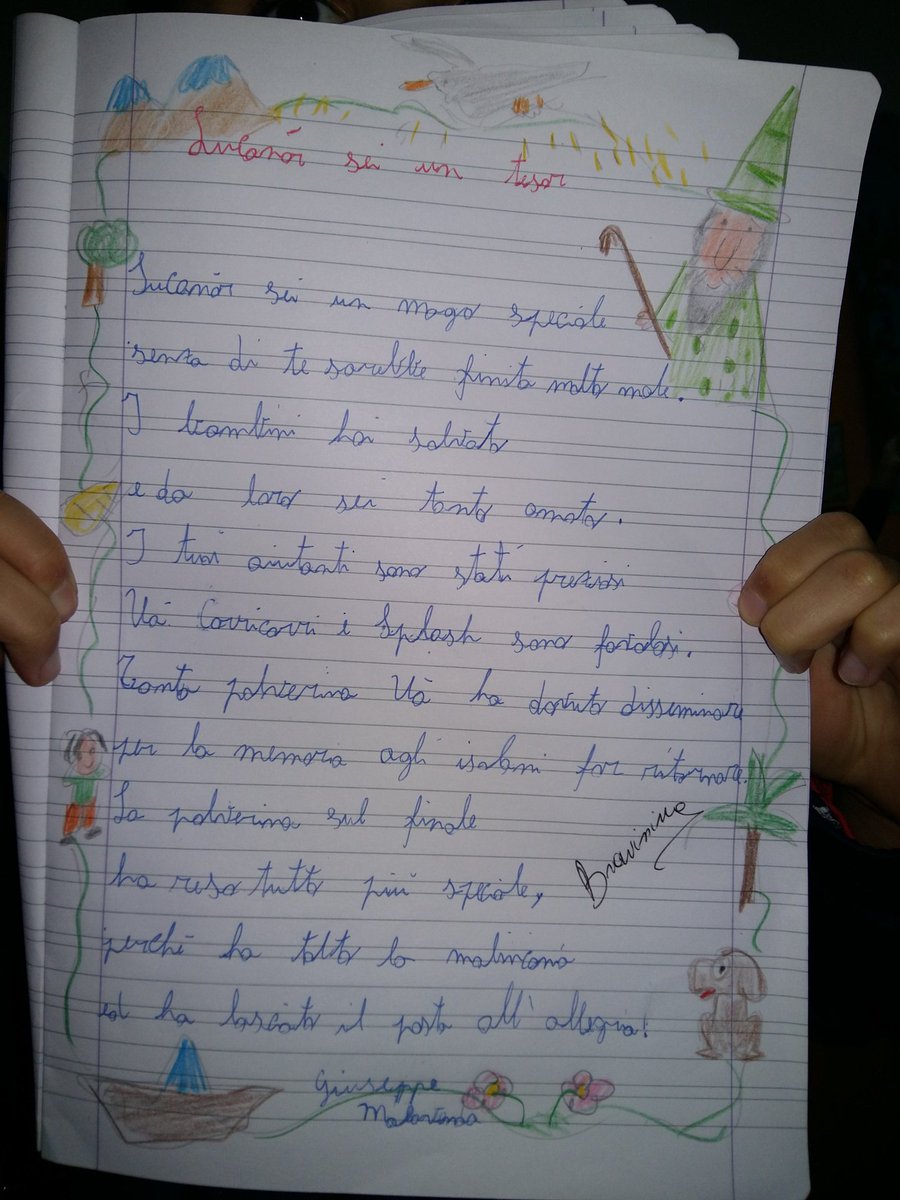 Lucanör sei un tesor
Lucanör sei un mago speciale
senza di te sarebbe finita molto male.
I bambini hai salvato
e da loro sei tanto amato.
I tuoi aiutanti sono stati preziosi
Uà. Cavicavi e Splash sono favolosi.
Tanta polverina Uà ha dovuto disseminare
per la memoria agli isolani far ritornare.
La polverina sul finale
ha reso tutto più speciale,
Bravissimo
perché ha tolto la malinconia
ed ha lasciato il posto all'allegria!
Giuseppe